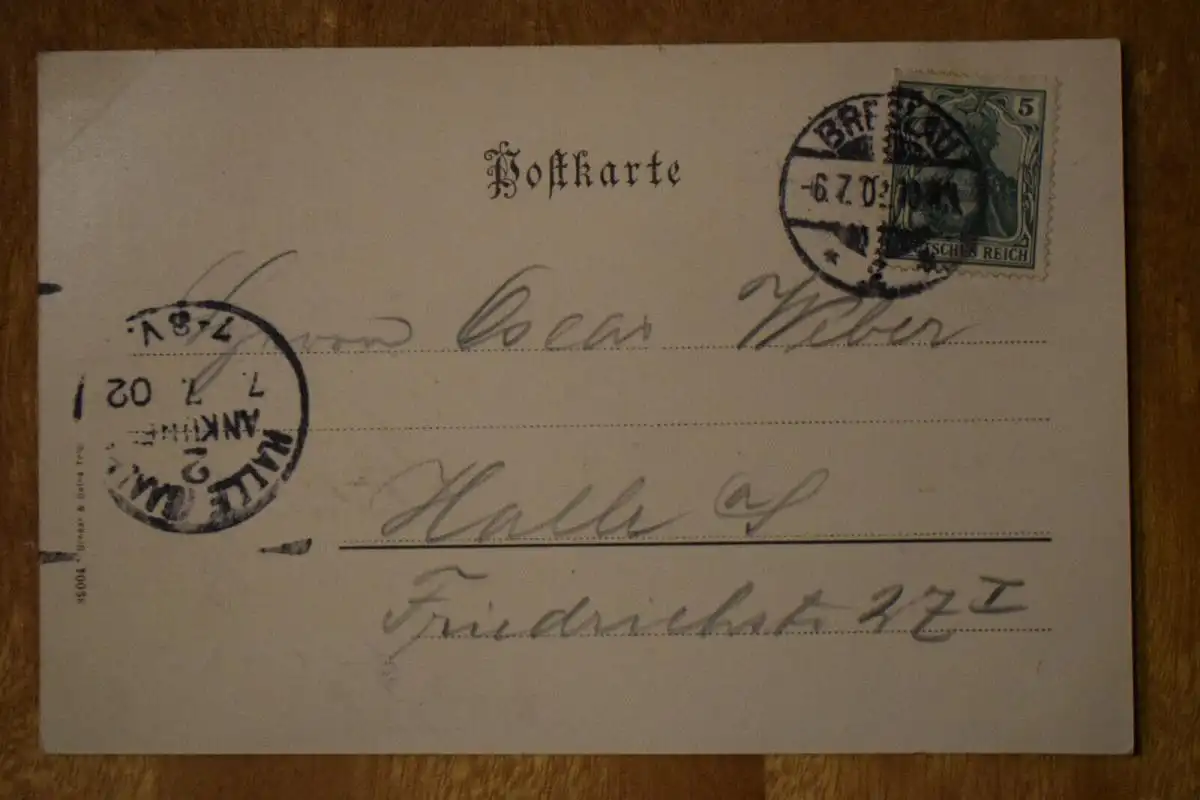 Postkarte
5
DEUTSCHES REICH
BRESLAU
-6.7.02.10
*
*
Herrn Oscar Weber
7-8 V.
7. 7. 02
ANKUNFT
2
HALLE (SAALE)
Halle a/S
Friedrichstr. 27 I